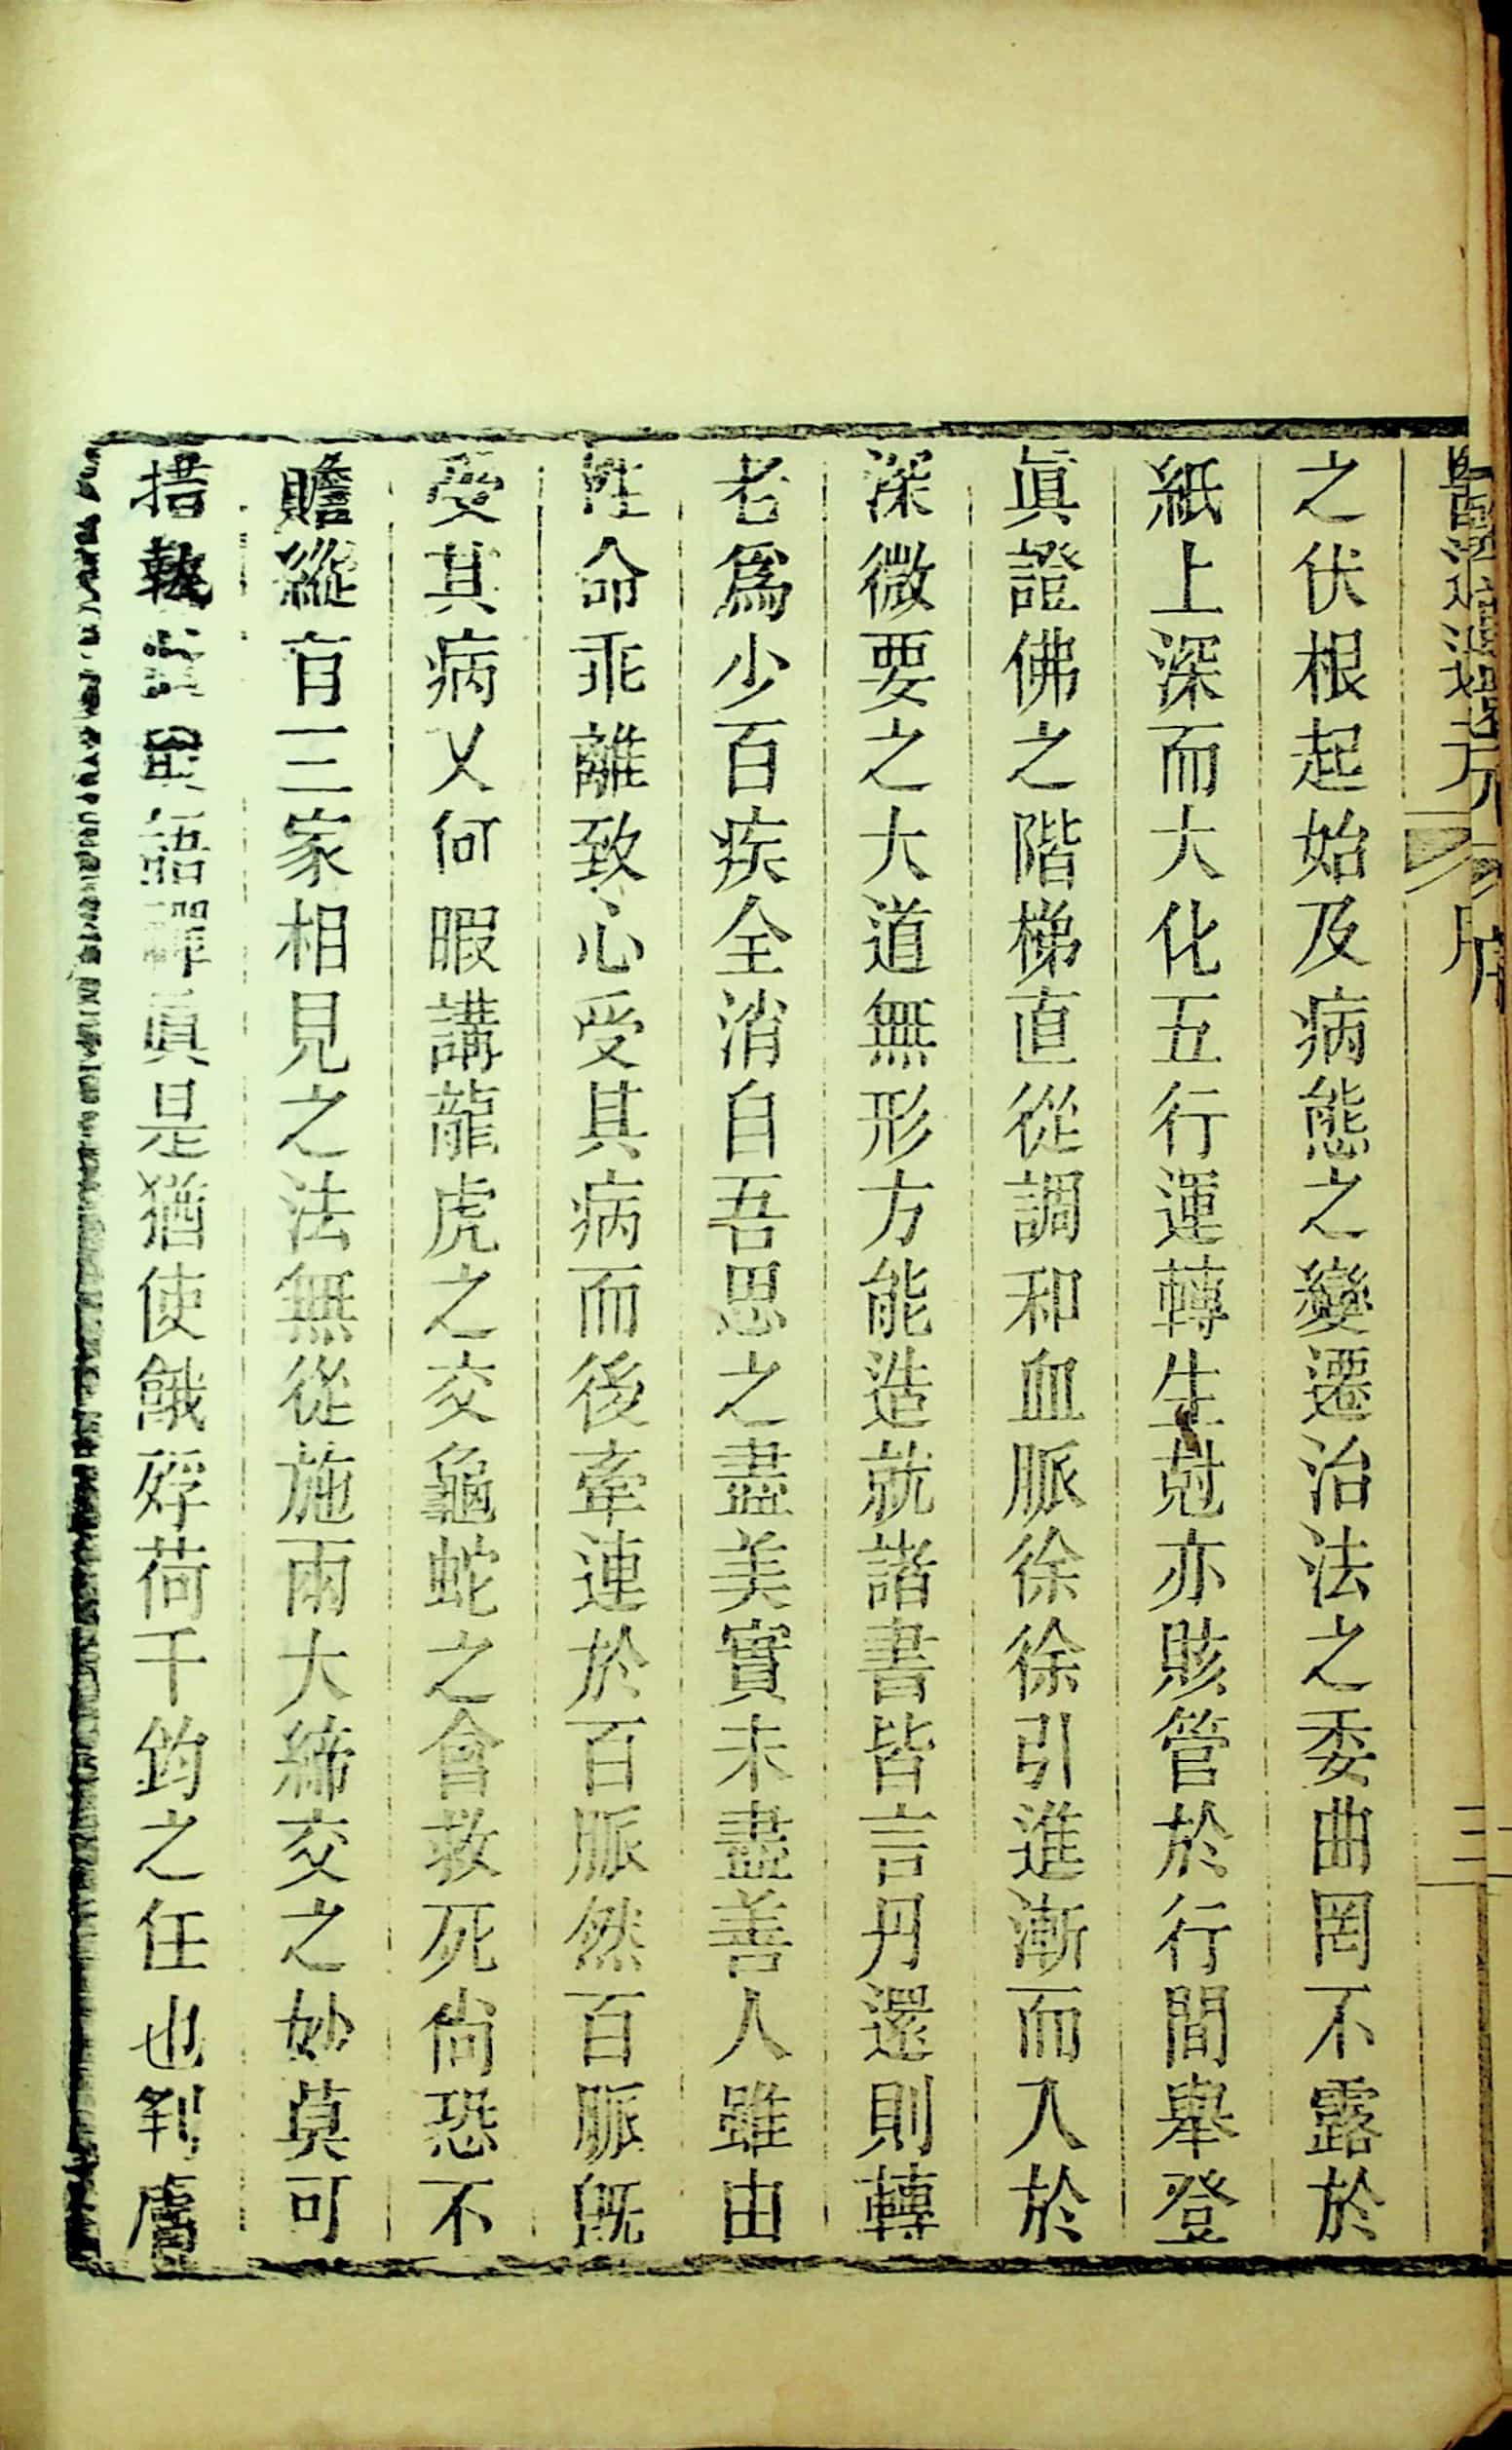 之伏根起始及病態之變遷治法之委曲罔不露於
紙上深而大化五行運轉生尅亦賅管於行間舉登
眞證佛之階梯直從調和血脈徐徐引進漸而入於
深微要之大道無形方能造就諸書皆言丹還則轉
老爲少百疾全消自吾思之盡美實未盡善人雖由
性命乖離致心受其病而後牽連於百脈然百脈旣
受其病又何暇講龍虎之交龜蛇之會救死尙恐不
贍縱有三家相見之法無從施雨大締交之妙莫可
措執語禪眞是猶使餓殍荷千鈞之任也
方
序
三